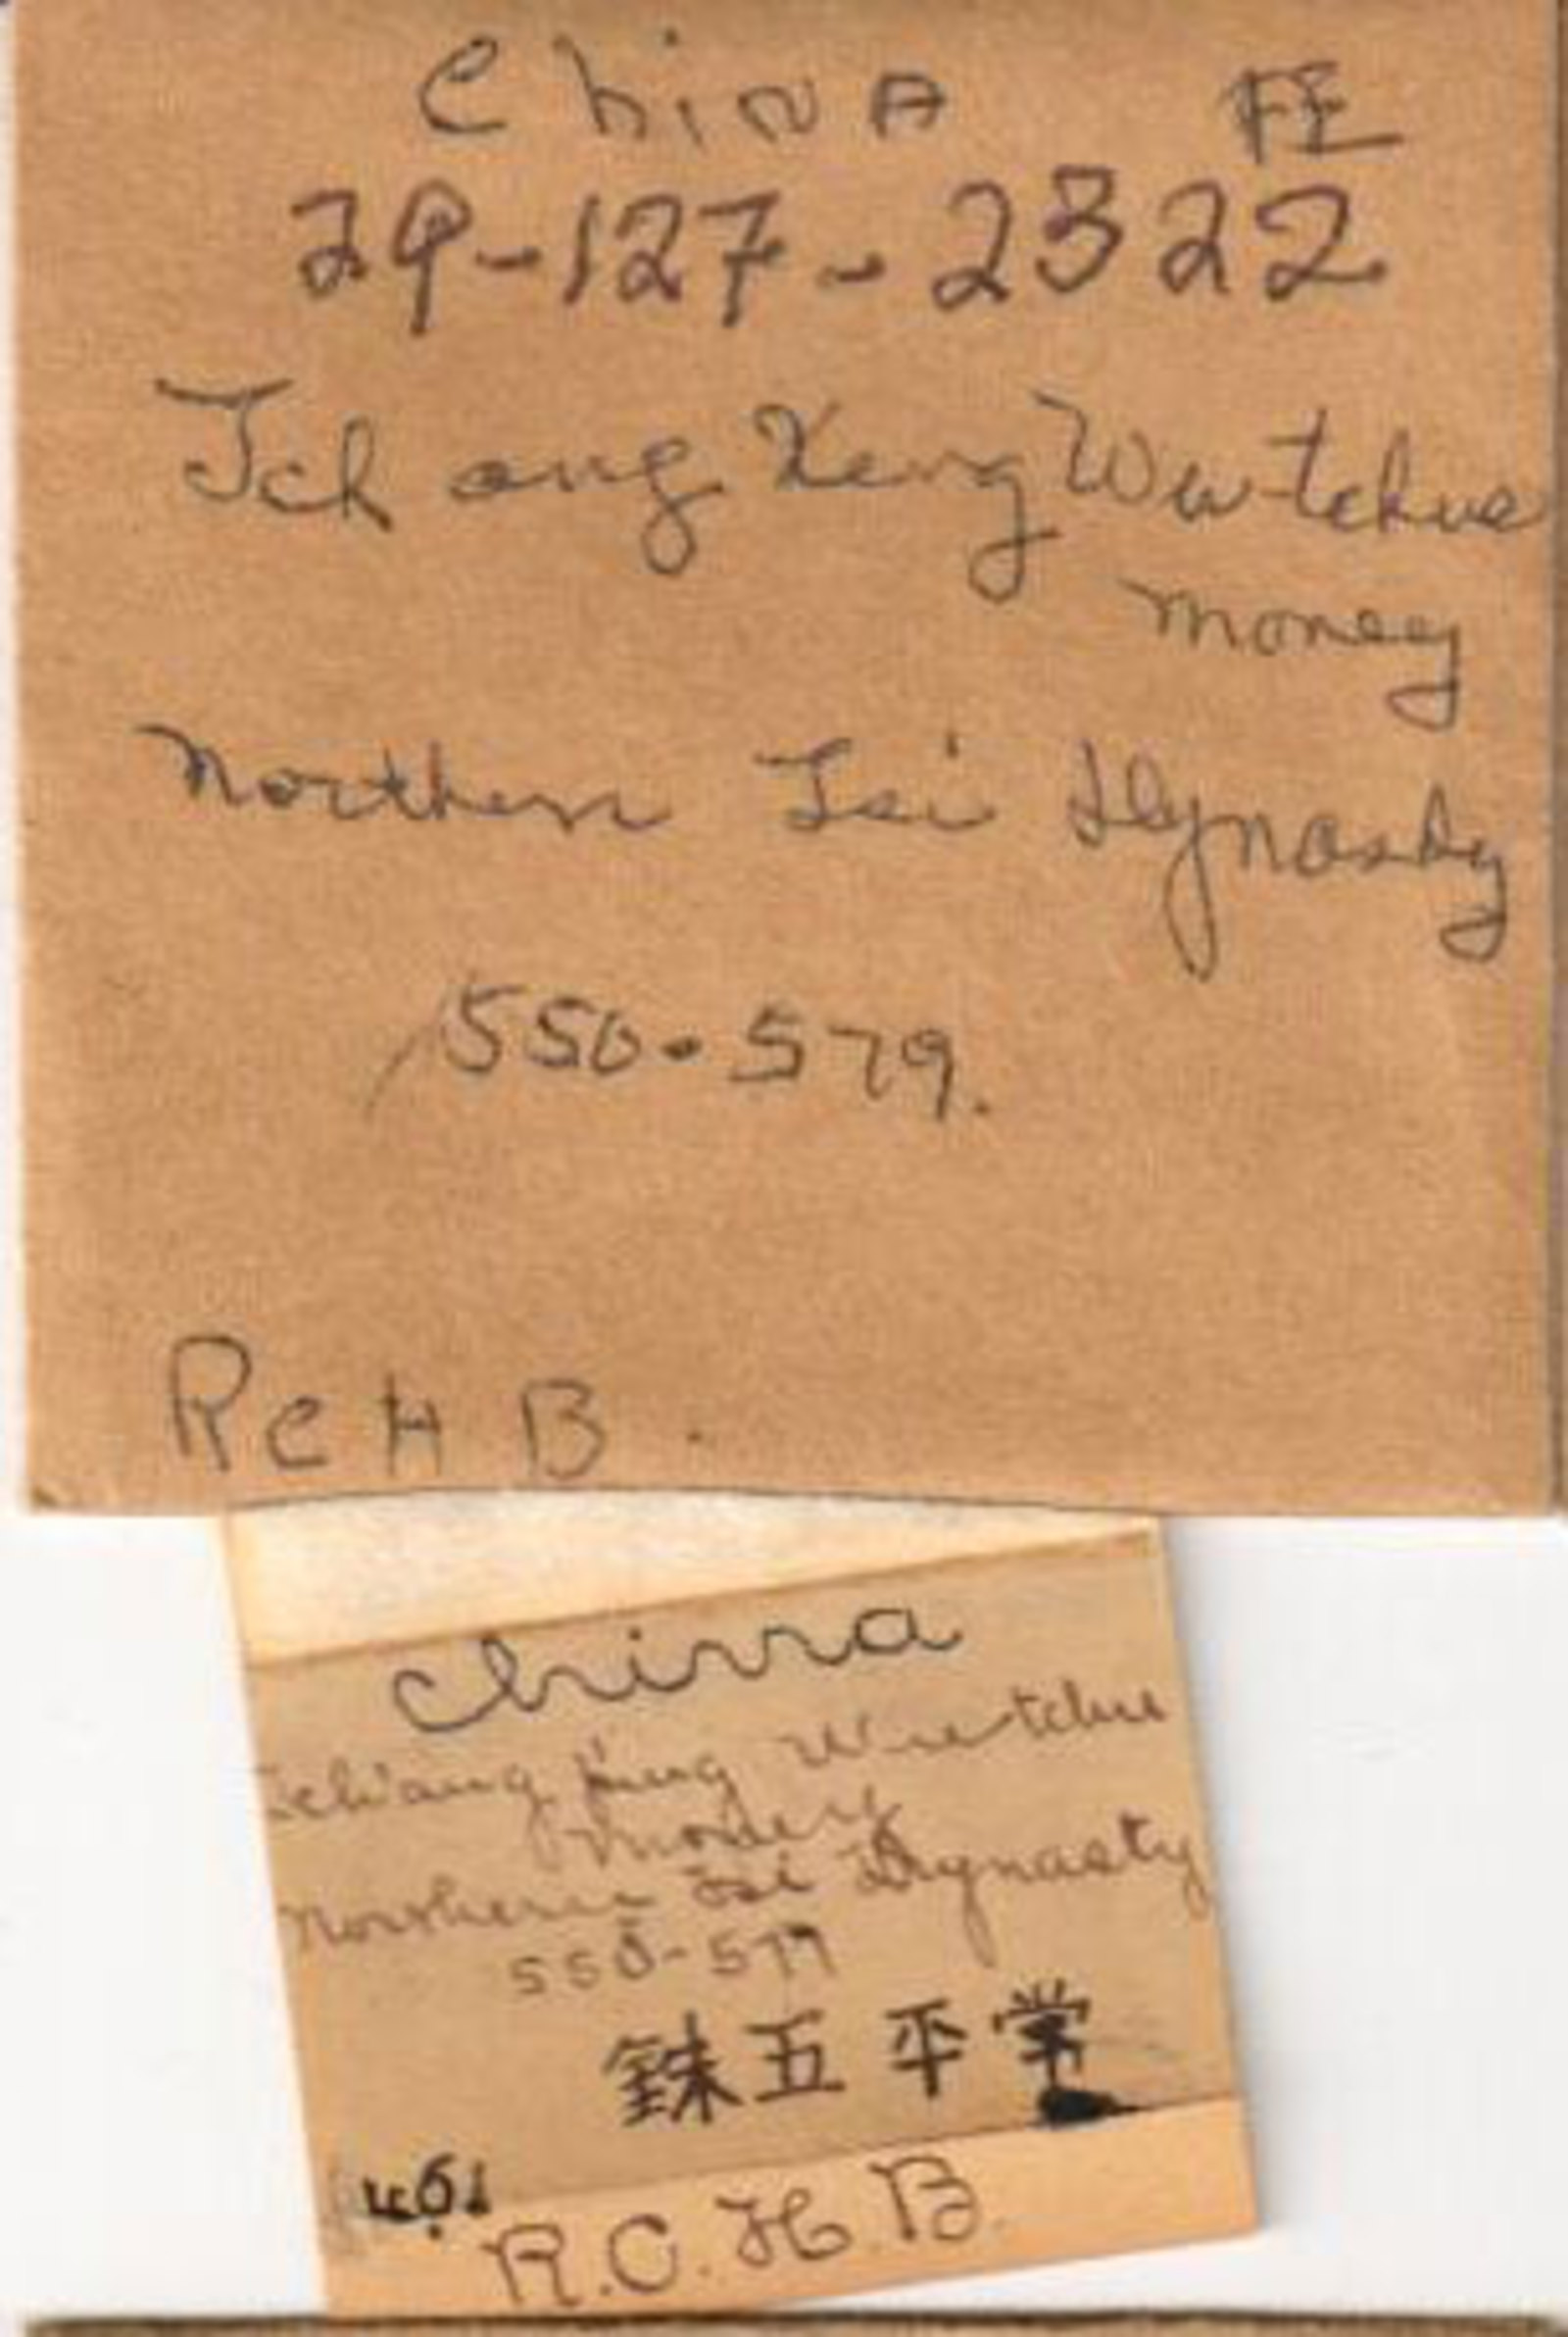 China FE
29-127-2322
Tch ang Keng Wu-tchue
money
Northern Tsi Dynasty
550-579.
RCHB.
China
Tch'ang King Wu-tchu
money
Northern Tsi Dynasty
550-577
銖五平常
461
R.C.H.B.